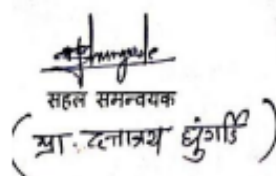 सहल समन्वयक
(प्रा. दत्तात्रय घुंगार्डे)